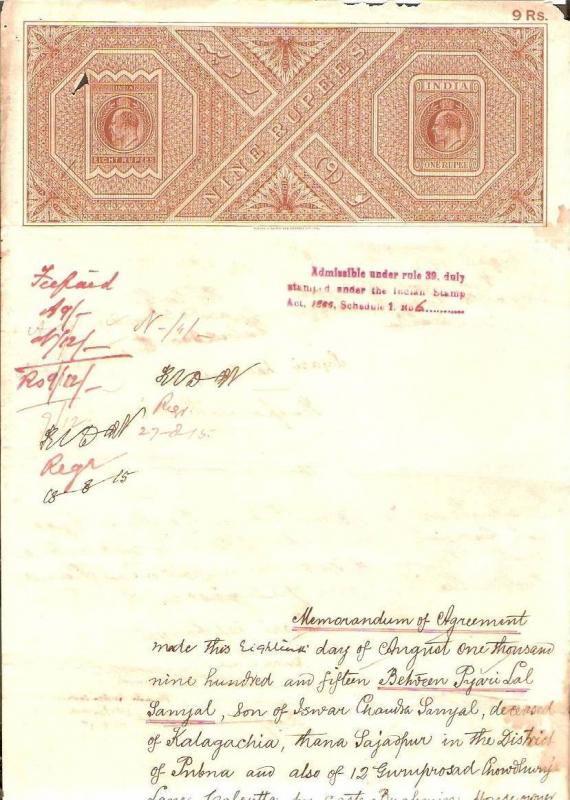 9 Rs.
INDIA
EIGHT RUPEES
NINE RUPEES
(9)
INDIA
ONE RUPEE
Admissible under rule 39, duly
stamped under the Indian Stamp
Act, 1899, Schedule 1. No 6
Fee paid
A 9/-
N/12/-
Rs 9/12/-
N-/4/-
9/12
Regr.
27-8-15.
Regr
18-8-15
Memorandum of Agreement
made this Eighteenth day of August one thousand
nine hundred and fifteen Between Pyari Lal
Sanyal, son of Iswar Chandra Sanyal, deceased
of Kalagachia, thana Sajadpur in the District
of Pubna and also of 12 Guruprosad Chowdhury
Lane Calcutta by caste Brahmin House owner